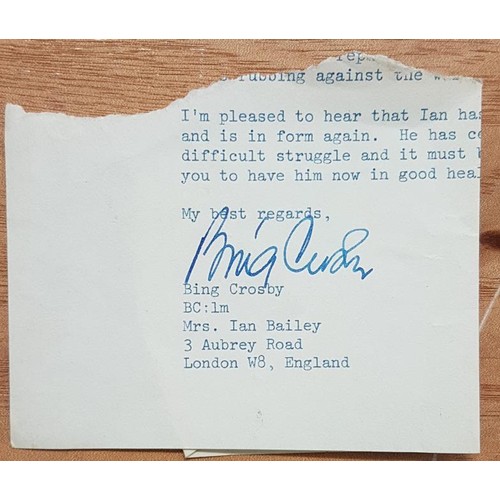 rubbing against the
I'm pleased to hear that Ian has
and is in form again. He has
difficult struggle and it must
you to have him now in good
My best regards,
Bing Crosby
Bing Crosby
BC:lm
Mrs. Ian Bailey
3 Aubrey Road
London W8, England